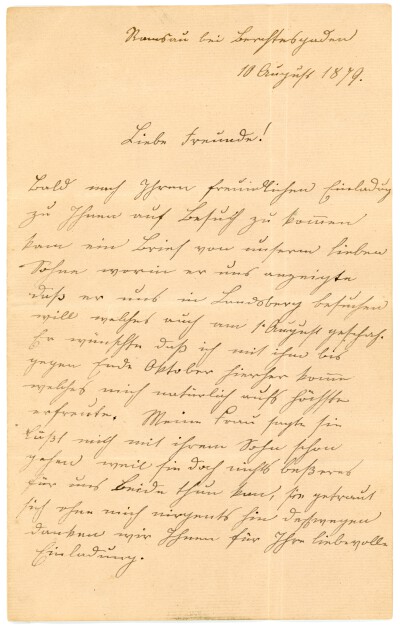 Ramsau bei Berchtesgaden
10 August 1879.
Liebe Freunde!
Bald nach Ihren freundlichen Einladung
zu Ihnen auf Besuch zu kommen
kam ein Brief von unserm lieben
Sohne worin er uns anzeigte
daß er uns in Landsberg besuchen
will welches auch am 1 August geschah.
Er wünschte daß ich mit ihm bis
gegen Ende Oktober hierher komme
welches mich natürlich aufs höchste
erfreute. Meine Frau sagte sie
läßt mich mit ihrem Sohn schon
gehen weil sie doch nichts beßeres
für uns beide thun kan, sie getraut
sich ohne mich nirgents hin deßwegen
danken wir Ihnen für Ihre liebevolle
Einladung.